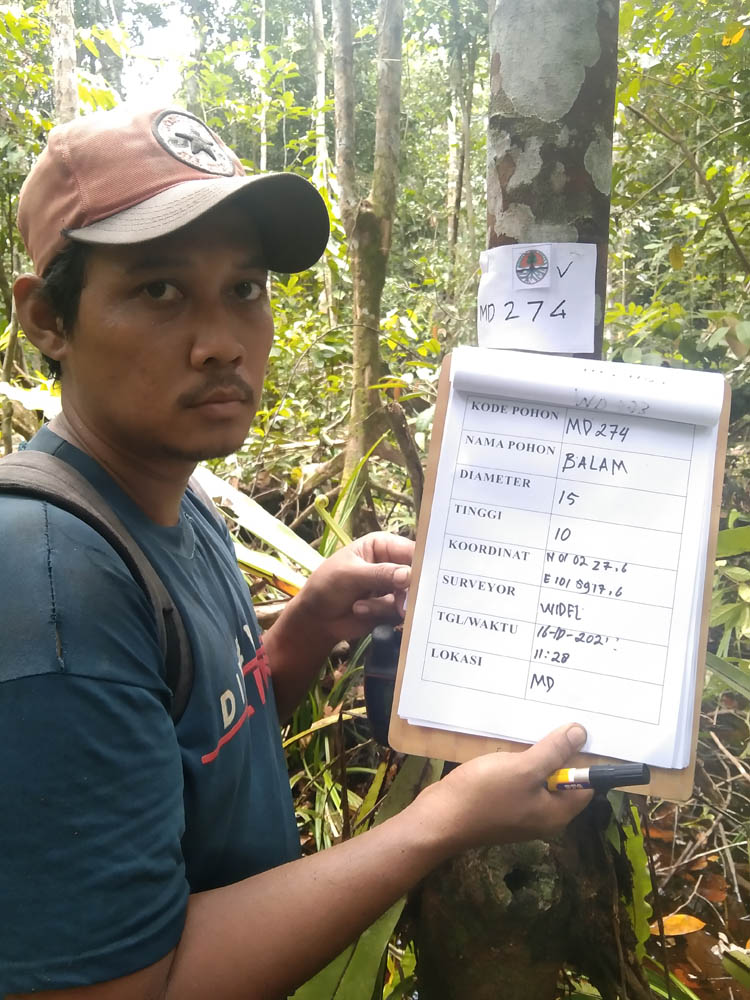 V
MD 274
KODE POHON MD 274
NAMA POHON BALAM
DIAMETER 15
TINGGI 10
KOORDINAT N 01 02 27,6
E 101 5917,6
SURVEYOR WIDEL
TGL/WAKTU
11:28
LOKASI MD